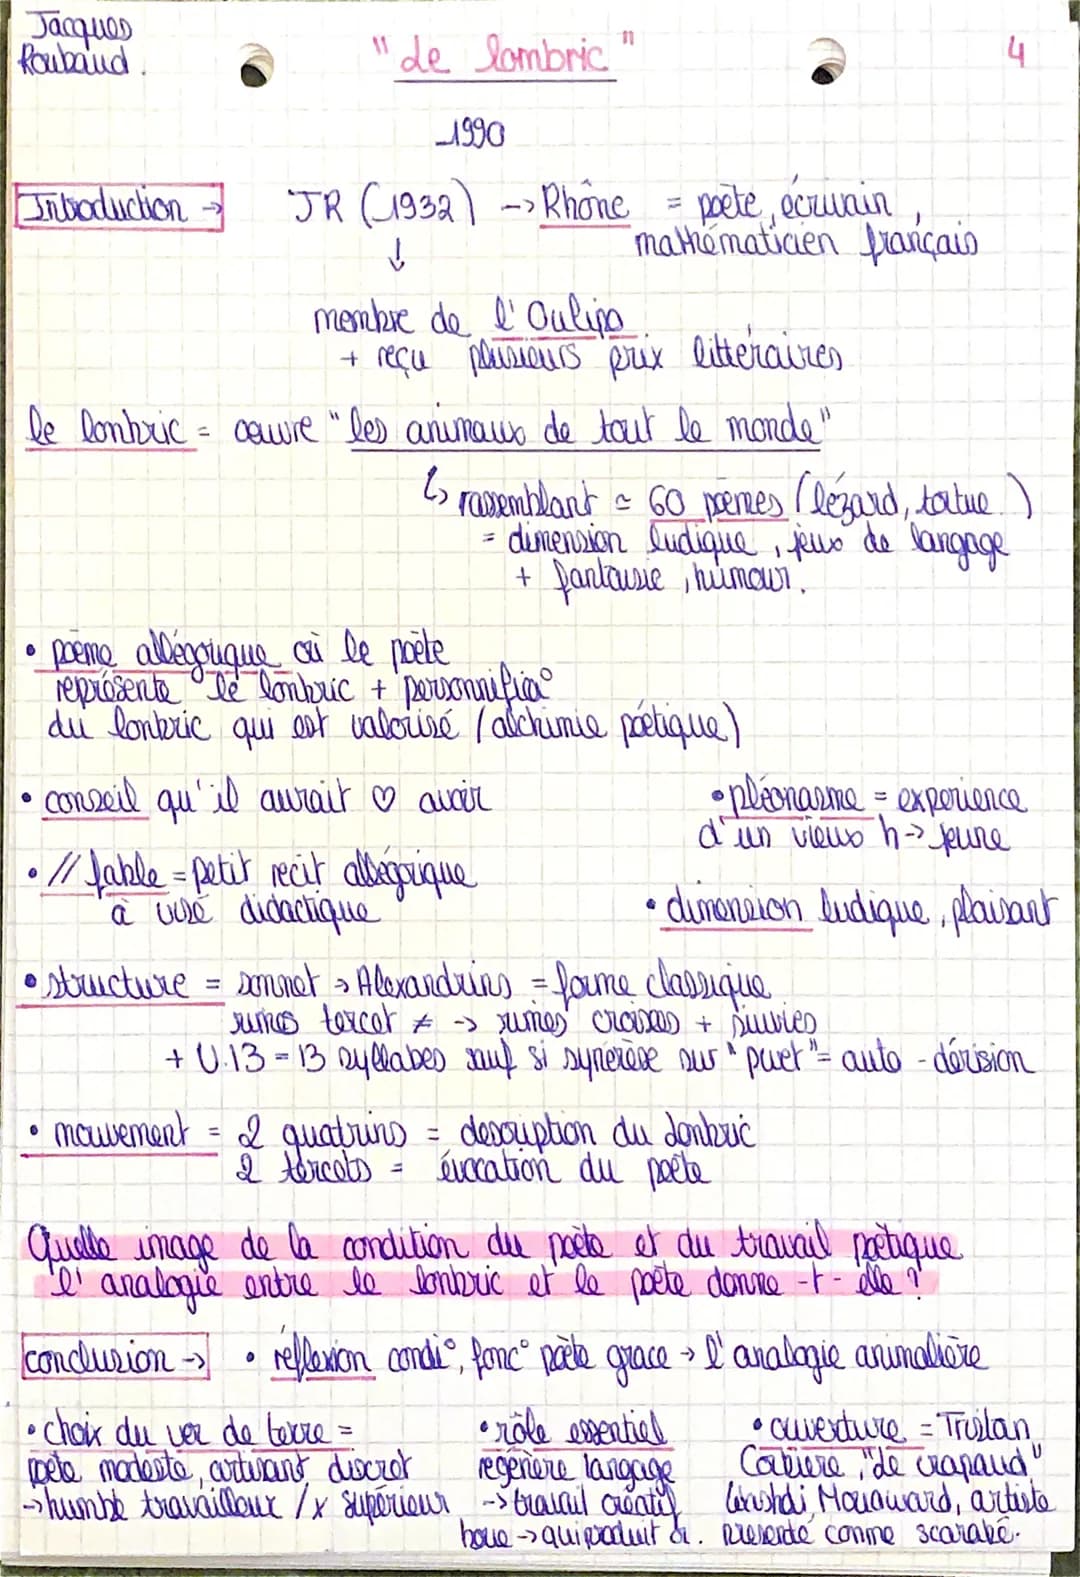 Jacques
Roubaud.
"de lombric"
4
1990
Introduction →
JR (1932) --> Rhône = poète, écrivain,
mathématicien français
↓
membre de l'Oulipo
+ reçu plusieurs prix littéraires
le lombric = œuvre "les animaux de tout le monde"
↳ rassemblant ≃ 60 poèmes (lézard, tortue..)
= dimension ludique, jeux de langage
+ fantaisie, humour.
• poème allégorique où le poète
représente le lombric + personnifica°
du lombric qui est valorisé (alchimie poétique)
• conseil qu'il aurait ♡ avoir
• pléonasme = experience
d'un vieux h -> jeune
• // fable = petit recit allégorique
à visé didactique
• dimension ludique, plaisant
• structure = sonnet → Alexandrins = forme classique
rimes tercet ≠ -> rimes croisées + suivies
+ V.13 = 13 syllabes sauf si synérèse sur "puet" = auto-dérision
• mouvement = 2 quatrins = description du lombric
2 tercets = évocation du poète
Quelle image de la condition du poète et du travail poètique
l'analogie entre le lombric et le poète donne-t-elle ?
conclusion ->
• réflexion condi°, fonc° poète grace → l'analogie animalière
• choix du ver de terre =
poète modeste, artisant discret
-> humble travailleur /x supérieur
• rôle essentiel
régénère langage
-> travail créatif
boue -> qui produit or.
• ouverture = Tristan
Corbière, "de crapaud"
Mouaward, artiste
présenté comme scarabé.